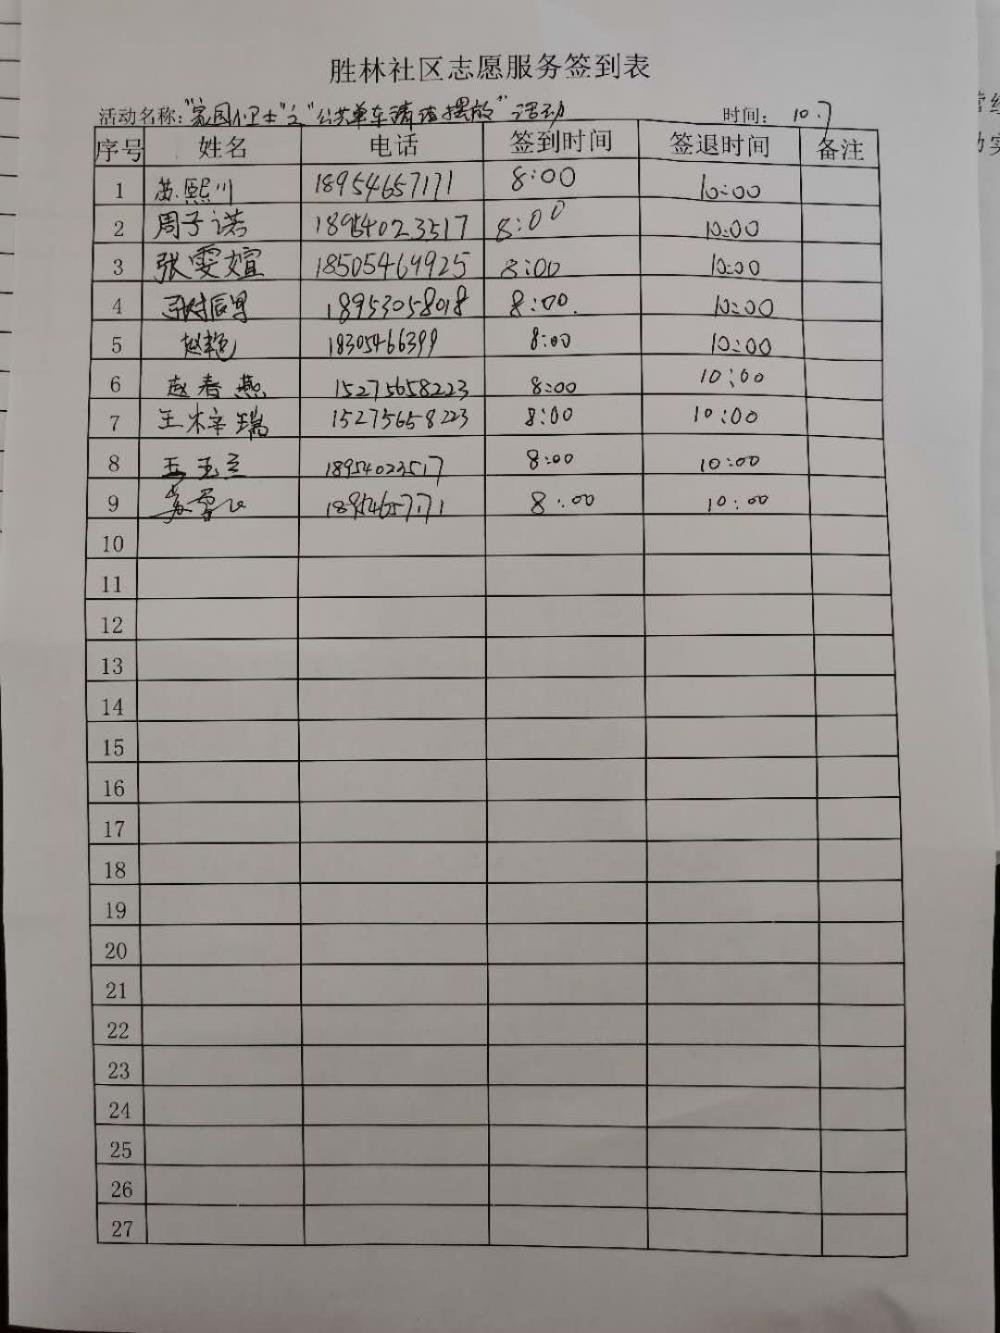 胜林社区志愿服务签到表
活动名称:"家园小卫士"之"公共单车清洁摆放"活动 时间: 10.7
序号 姓名 电话 签到时间 签退时间 备注
1 苏熙川 18954657171 8:00 10:00
2 周子诺 18954023517 8:00 10:00
3 张雯媗 18505469925 8:00 10:00
4 18953058018 8:00. 10:00
5 赵艳 18305466399 8:00 10:00
6 赵春燕 15275658223 8:00 10:00
7 王梓瑞 15275658223 8:00 10:00
8 王玉兰 18954023517 8:00 10:00
9 18954657171 8:00 10:00
10
11
12
13
14
15
16
17
18
19
20
21
22
23
24
25
26
27